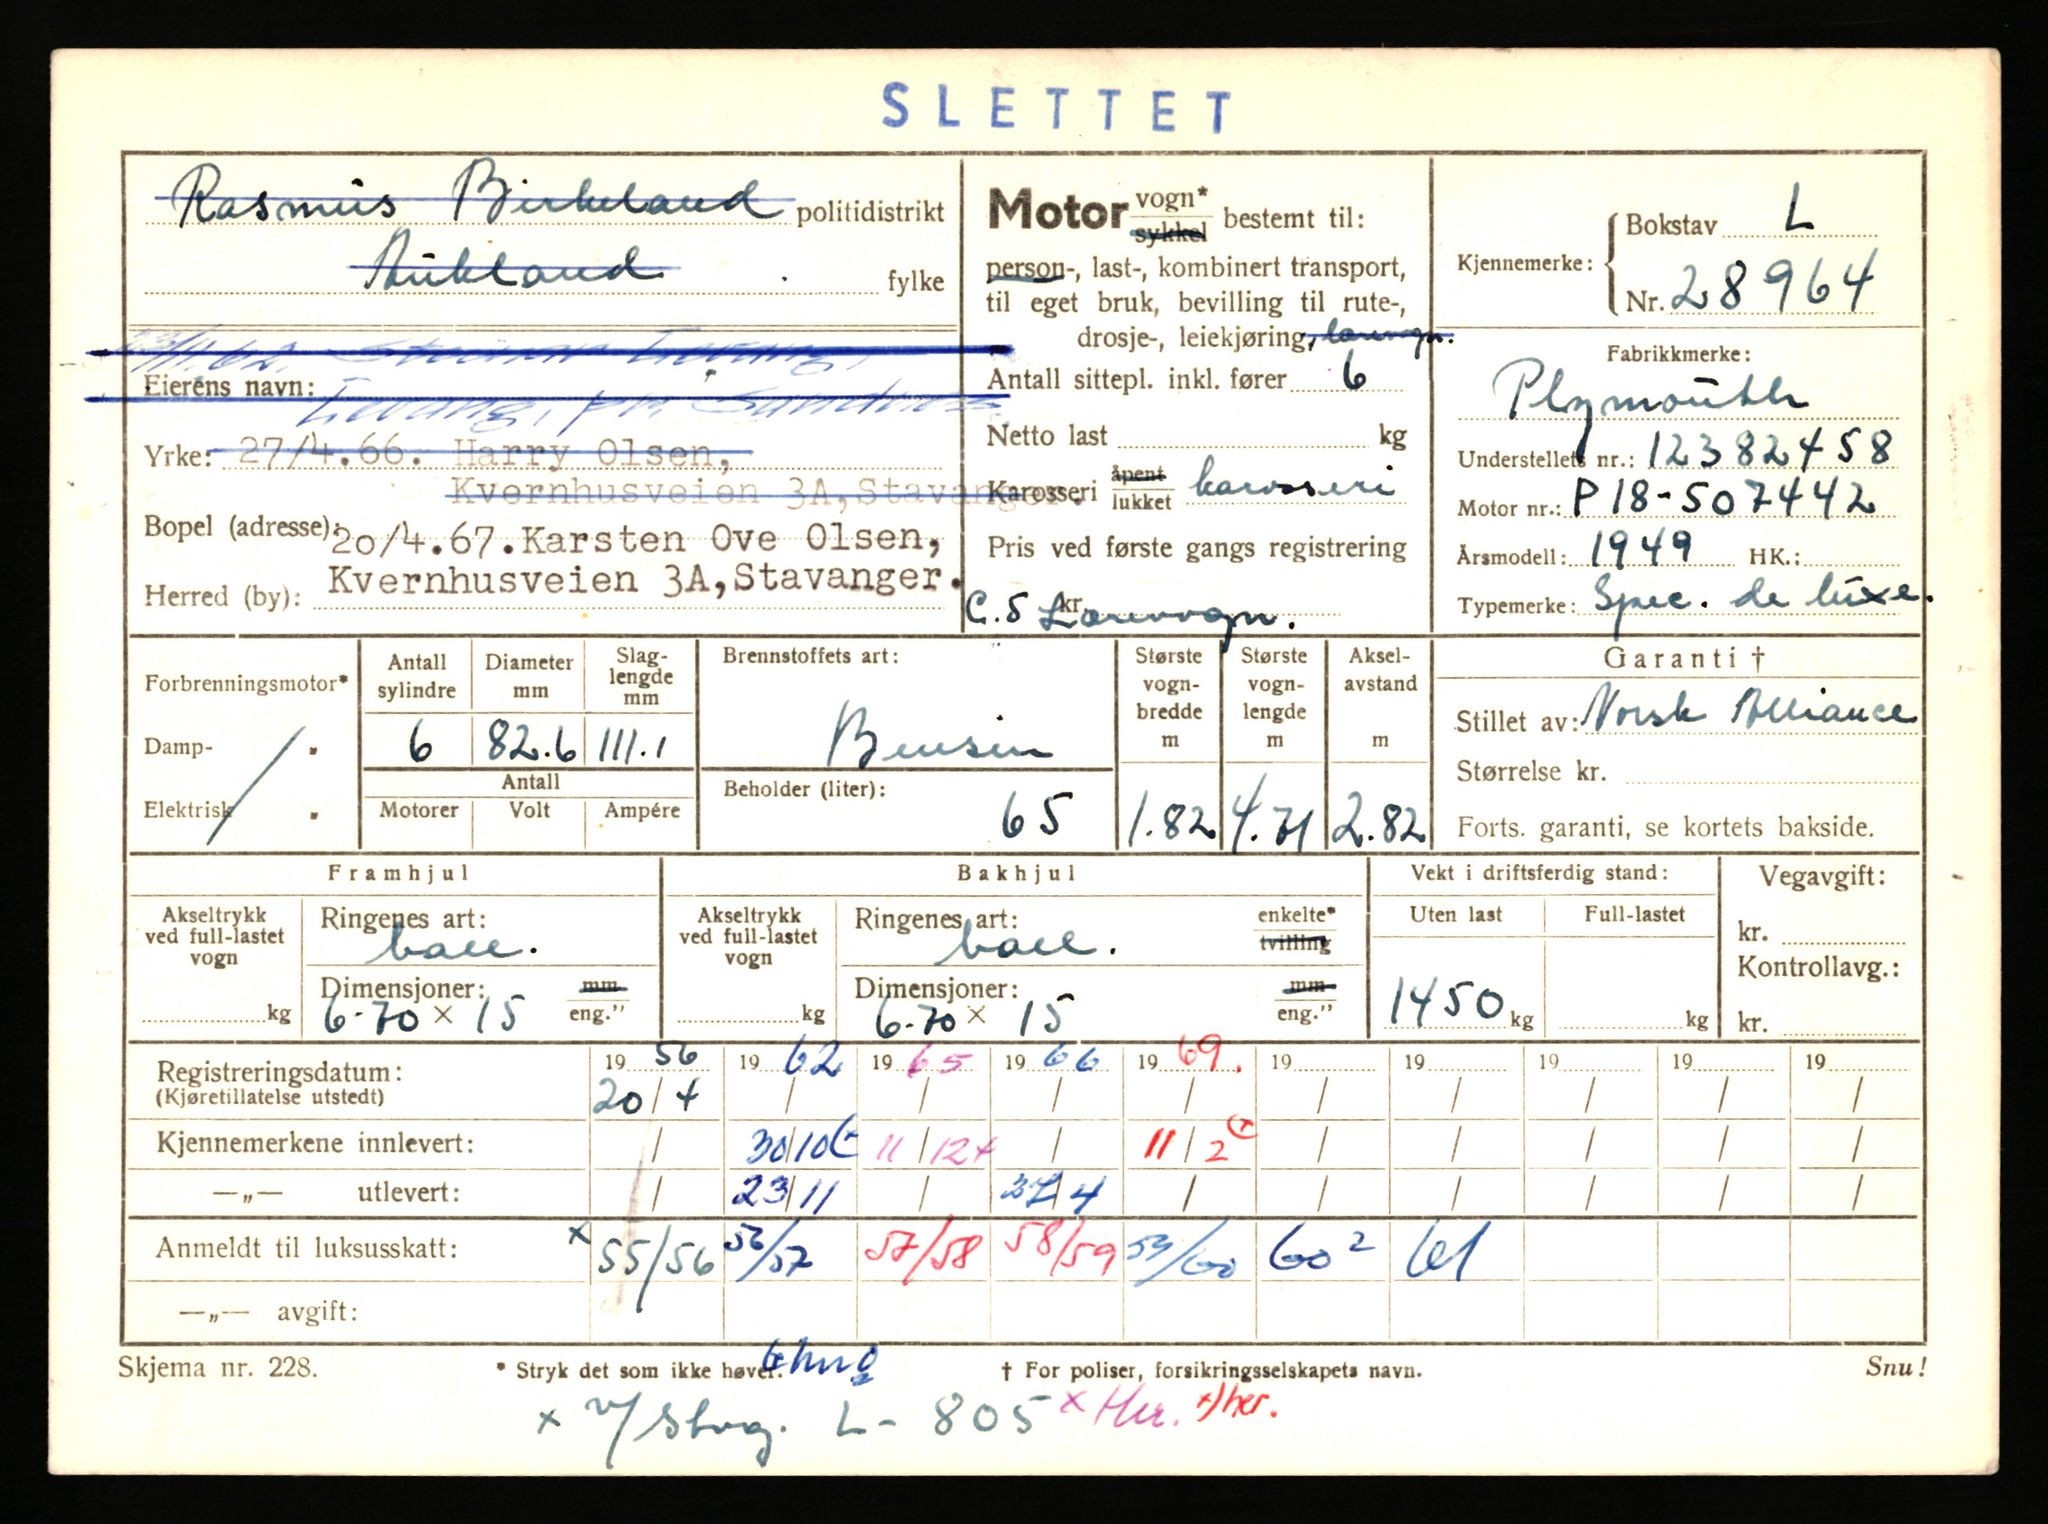 SLETTET
Rasmus Birkeland politidistrikt
Aukland fylke
Eierens navn:
Yrke: 27/4.66. Harry Olsen,
Kvernhusveien 3A, Stavanger.
Bopel (adresse): 20/4.67. Karsten Ove Olsen,
Herred (by): Kvernhusveien 3A, Stavanger.
Motor vogn* sykkel bestemt til:
person-, last-, kombinert transport,
til eget bruk, bevilling til rute-,
drosje-, leiekjøring, larevogn.
Antall sittepl. inkl. fører 6
Netto last kg
Karosseri åpent lukket karosseri
Pris ved første gangs registrering
kr.
C.5 Lærevogn.
Kjennemerke: Bokstav L
Nr. 28964
Fabrikkmerke:
Plymouth
Understellets nr.: 12382458
Motor nr.: P18-507442
Årsmodell: 1949 HK.:
Typemerke: Spec. de luxe.
Forbrenningsmotor*
Damp- "
Elektrisk "
Antall sylindre 6
Diameter mm 82.6
Slaglengde mm 111.1
Antall
Motorer Volt Ampére
Brennstoffets art:
Bensin
Beholder (liter): 65
Største vogn-bredde m 1.82
Største vogn-lengde m 4.71
Aksel-avstand m 2.82
Garanti †
Stillet av: Norsk Alliance
Størrelse kr.
Forts. garanti, se kortets bakside.
Framhjul
Akseltrykk ved full-lastet vogn kg
Ringenes art: ball.
Dimensjoner: mm eng."
6.70 × 15
Bakhjul
Akseltrykk ved full-lastet vogn kg
Ringenes art: ball. enkelte* tvilling
Dimensjoner: mm eng."
6.70 × 15
Vekt i driftsferdig stand:
Uten last Full-lastet
1450 kg kg
Vegavgift:
kr.
Kontrollavg.:
kr.
Registreringsdatum: 1956 1962 1965 1966 1969. 19 19 19 19 19
(Kjøretillatelse utstedt) 20/4 / / / / / / / / /
Kjennemerkene innlevert: / 30/10 11/12+ / 11/2 / / / / /
—„— utlevert: / 23/11 / 27/4 / / / / / /
Anmeldt til luksusskatt: × 55/56 56/57 57/58 58/59 59/60 60² 61
—„— avgift:
Skjema nr. 228. * Stryk det som ikke høver. † For poliser, forsikringsselskapets navn. Snu!
× v/Stvg. L- 805 × Her. +) her.